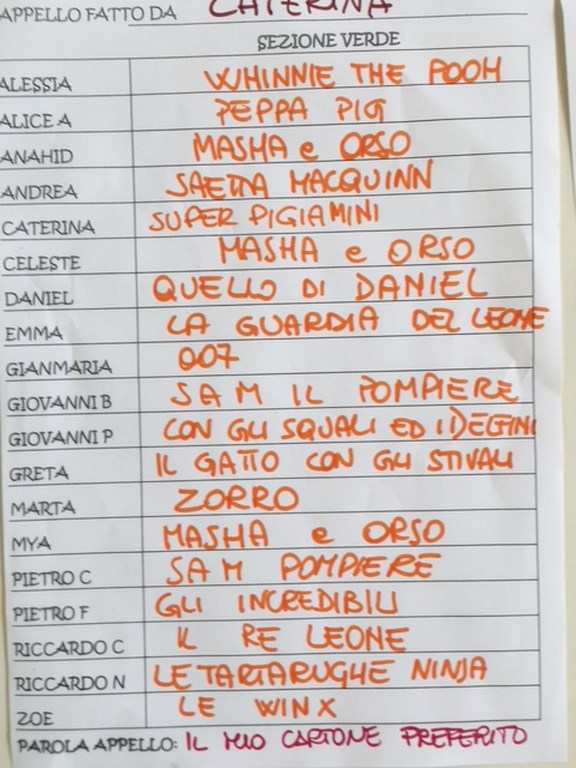 APPELLO FATTO DA CATERINA
SEZIONE VERDE
ALESSIA WHINNIE THE POOH
ALICE A PEPPA PIG
ANAHID MASHA e ORSO
ANDREA SAETTA MACQUINN
CATERINA SUPER PIGIAMINI
CELESTE MASHA e ORSO
DANIEL QUELLO DI DANIEL
EMMA LA GUARDIA DEL LEONE
GIANMARIA 007
GIOVANNI B SAM IL POMPIERE
GIOVANNI P CON GLI SQUALI ED I DELFINI
GRETA IL GATTO CON GLI STIVALI
MARTA ZORRO
MYA MASHA e ORSO
PIETRO C SAM POMPIERE
PIETRO F GLI INCREDIBILI
RICCARDO C IL RE LEONE
RICCARDO N LE TARTARUGHE NINJA
ZOE LE WINX
PAROLA APPELLO: IL MIO CARTONE PREFERITO